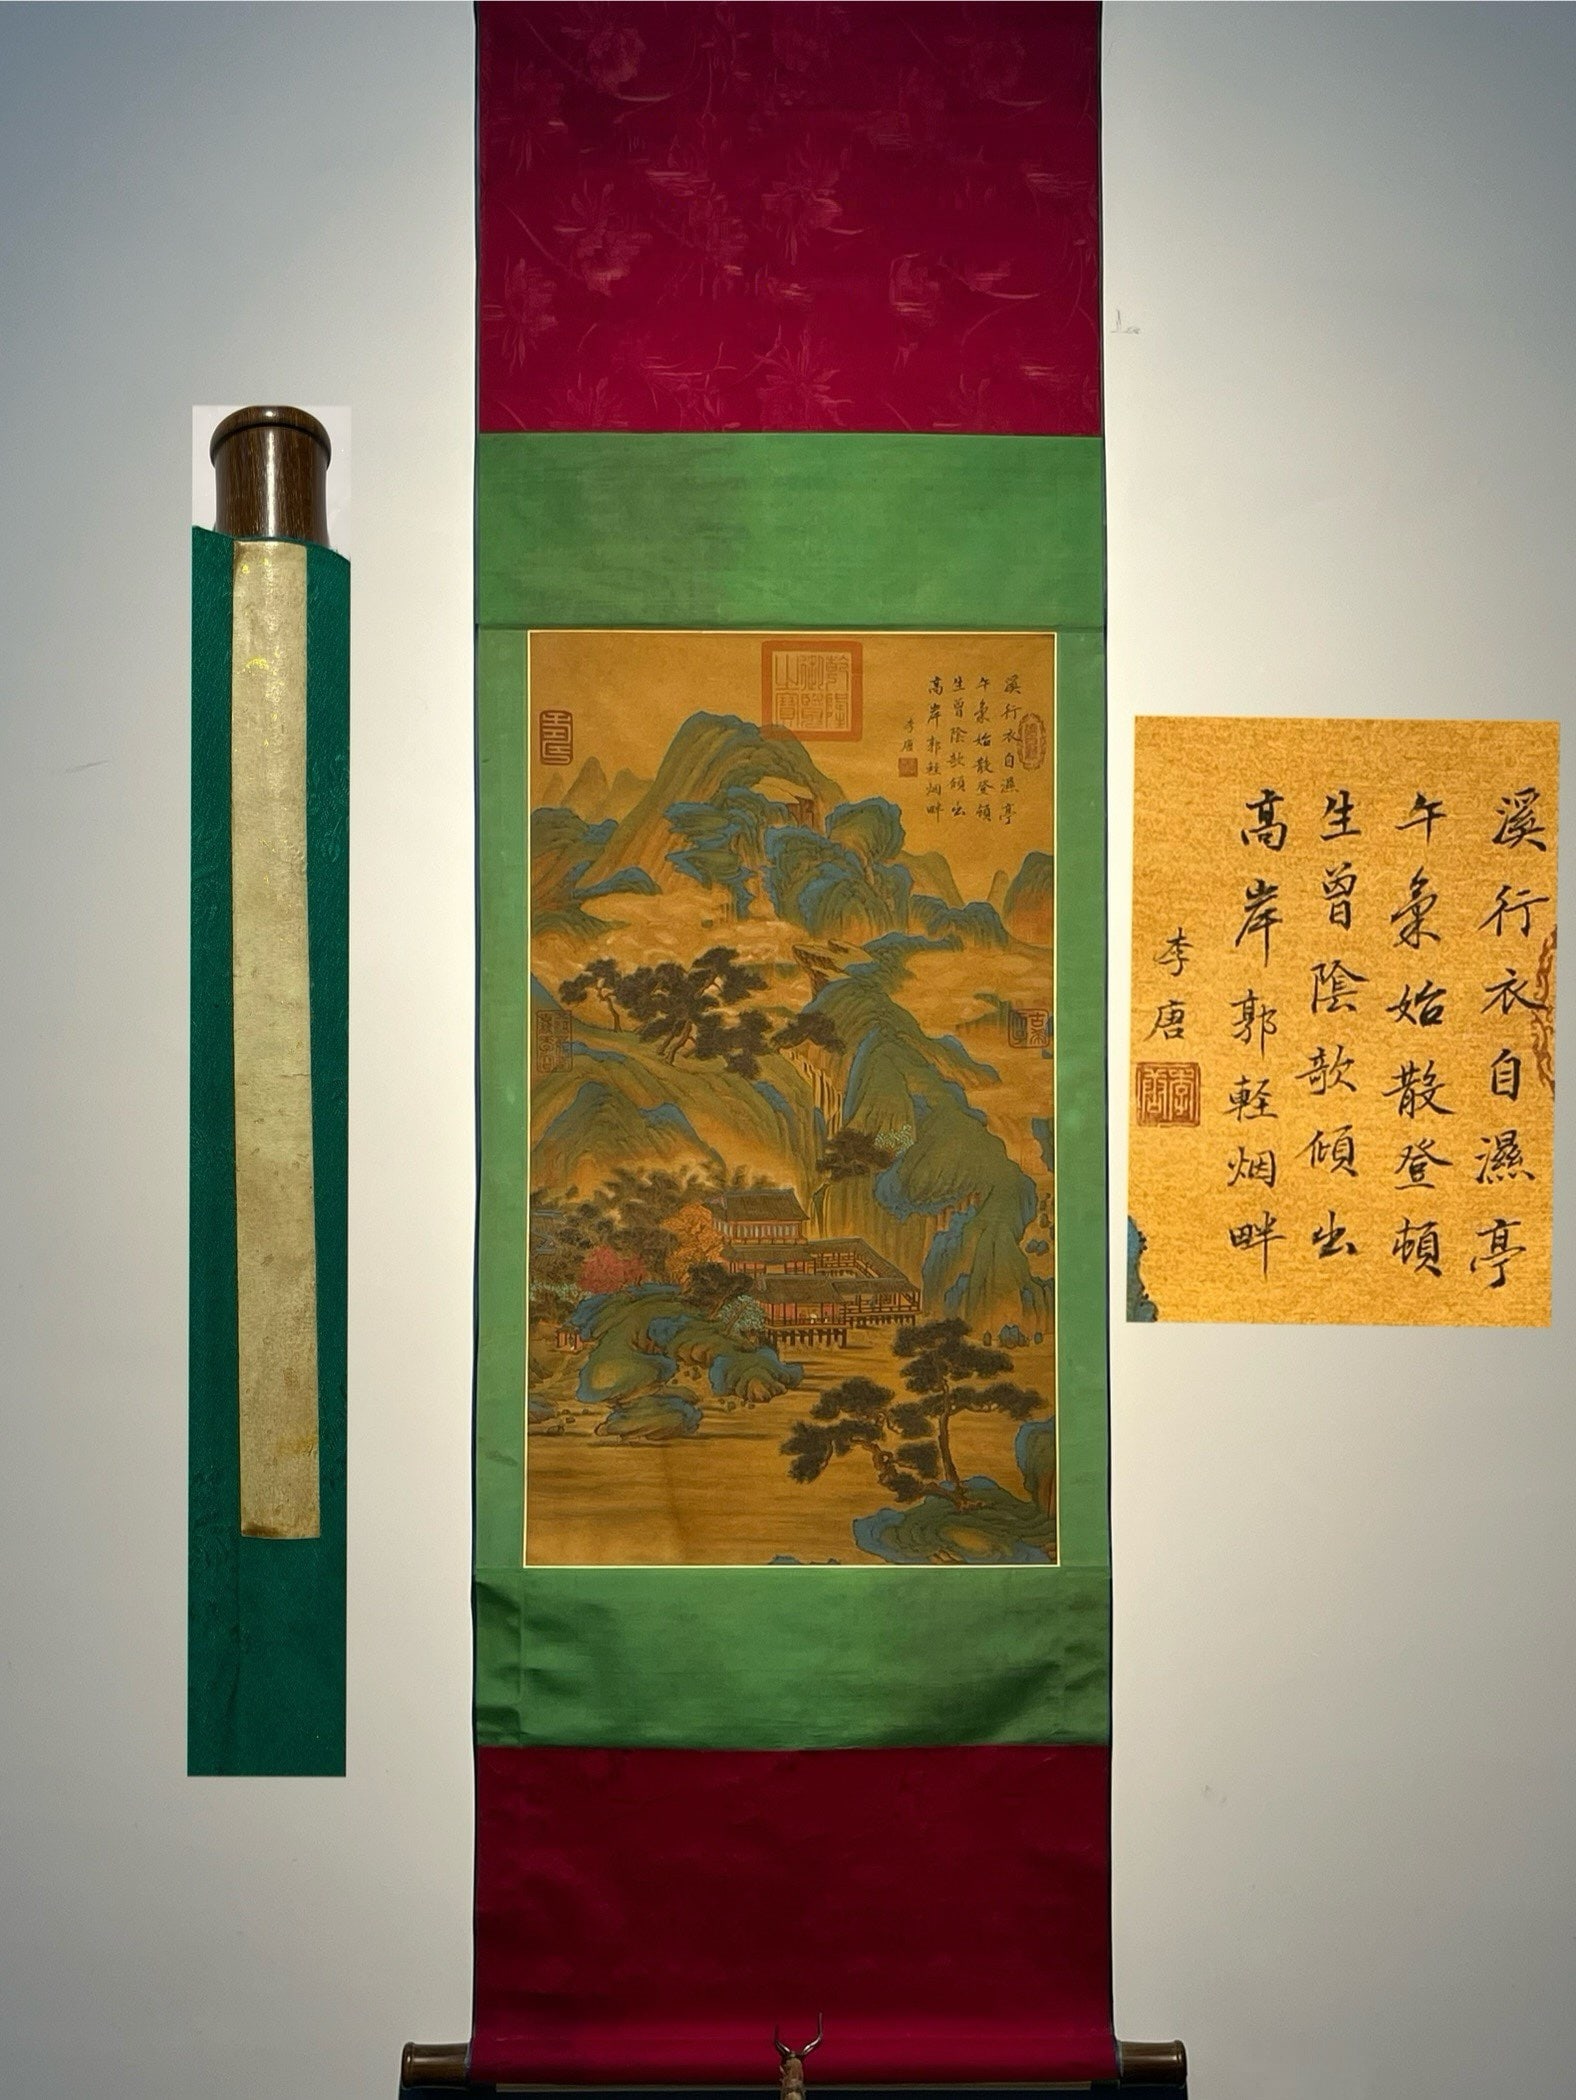 溪行衣自濕亭
午氣始散登頓
生曾陰歌傾出
高岸郭輕烟畔
李唐
乾隆御覽之寶
溪行衣自濕亭
午氣始散登頓
生曾陰歌傾出
高岸郭輕烟畔
李唐
李唐